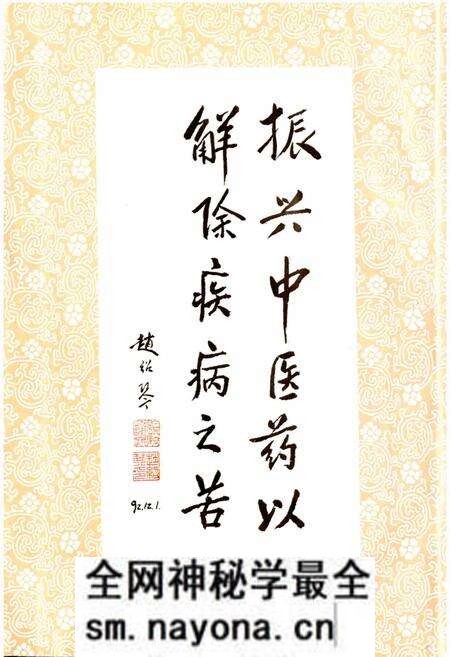 振兴中医药以
解除疾病之苦
趙绍琴
92.12.1.
全网神秘学最全
sm.nayona.cn